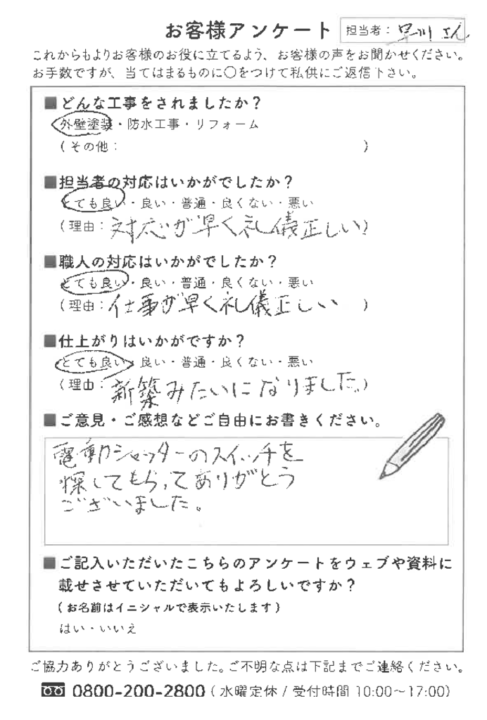 お客様アンケート 担当者: 早川さん
これからもよりお客様のお役に立てるよう、お客様の声をお聞かせください。
お手数ですが、当てはまるものに○をつけて私供にご返信下さい。
■どんな工事をされましたか?
外壁塗装・防水工事・リフォーム
(その他: )
■担当者の対応はいかがでしたか?
とても良い・良い・普通・良くない・悪い
(理由: 対応が早く礼儀正しい)
■職人の対応はいかがでしたか?
とても良い・良い・普通・良くない・悪い
(理由: 仕事が早く礼儀正しい )
■仕上がりはいかがですか?
とても良い・良い・普通・良くない・悪い
(理由: 新築みたいになりました。)
■ご意見・ご感想などご自由にお書きください。
電動シャッターのスイッチを
探してもらってありがとう
ございました。
■ご記入いただいたこちらのアンケートをウェブや資料に
載せさせていただいてもよろしいですか?
(お名前はイニシャルで表示いたします)
はい・いいえ
ご協力ありがとうございました。ご不明な点は下記までご連絡ください。
0800-200-2800(水曜定休/受付時間 10:00〜17:00)